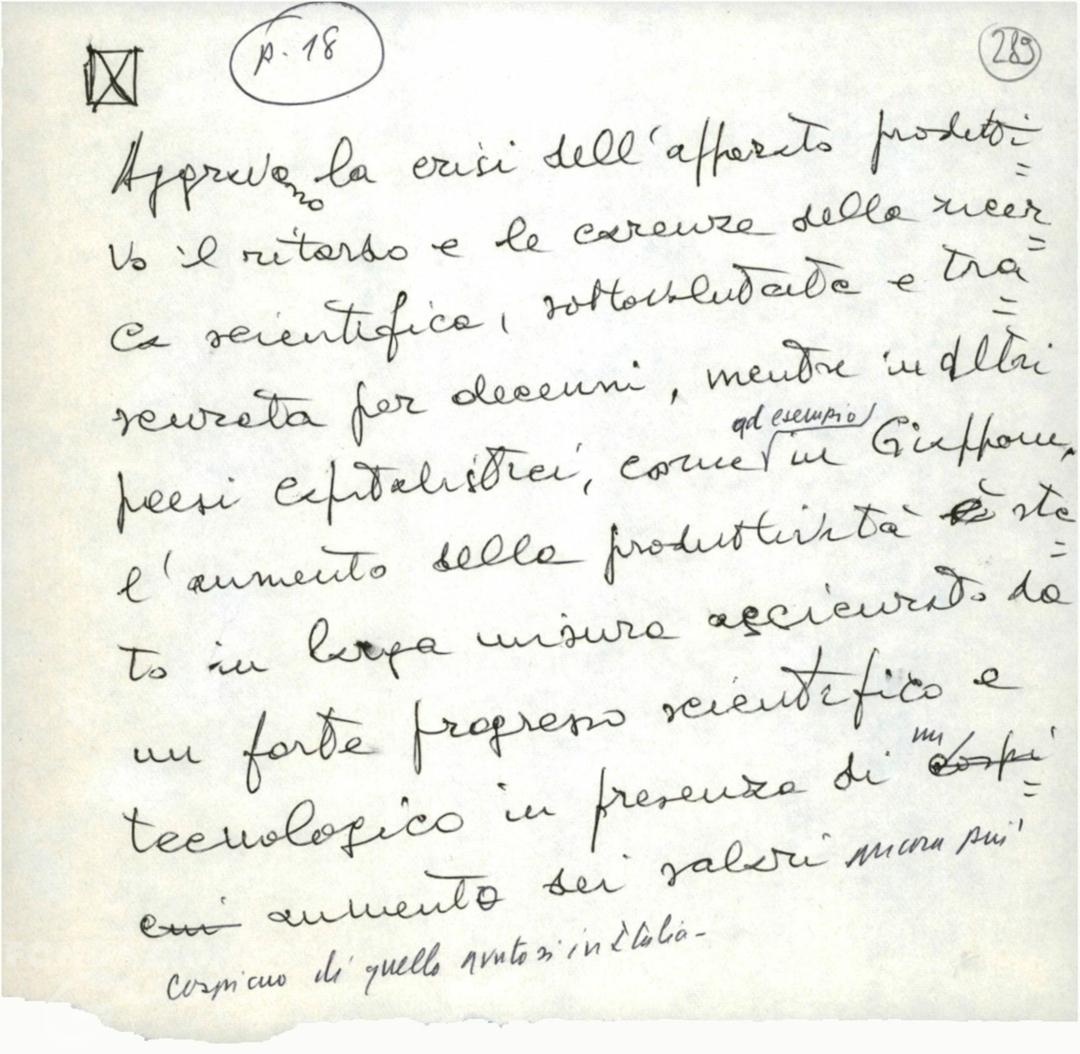 p. 18
289
Aggravano la crisi dell'apparato produtti=
vo il ritardo e le carenze della ricer=
ca scientifica, sottovalutata e tra=
scurata per decenni, mentre in altri
paesi capitalistici, come ad esempio in Giappone,
l'aumento della produttività è sta=
to in larga misura assicurato da
un forte progresso scientifico e
tecnologico in presenza di un cospi=
cui aumento dei salari ancora più
cospicuo di quello avutosi in Italia-